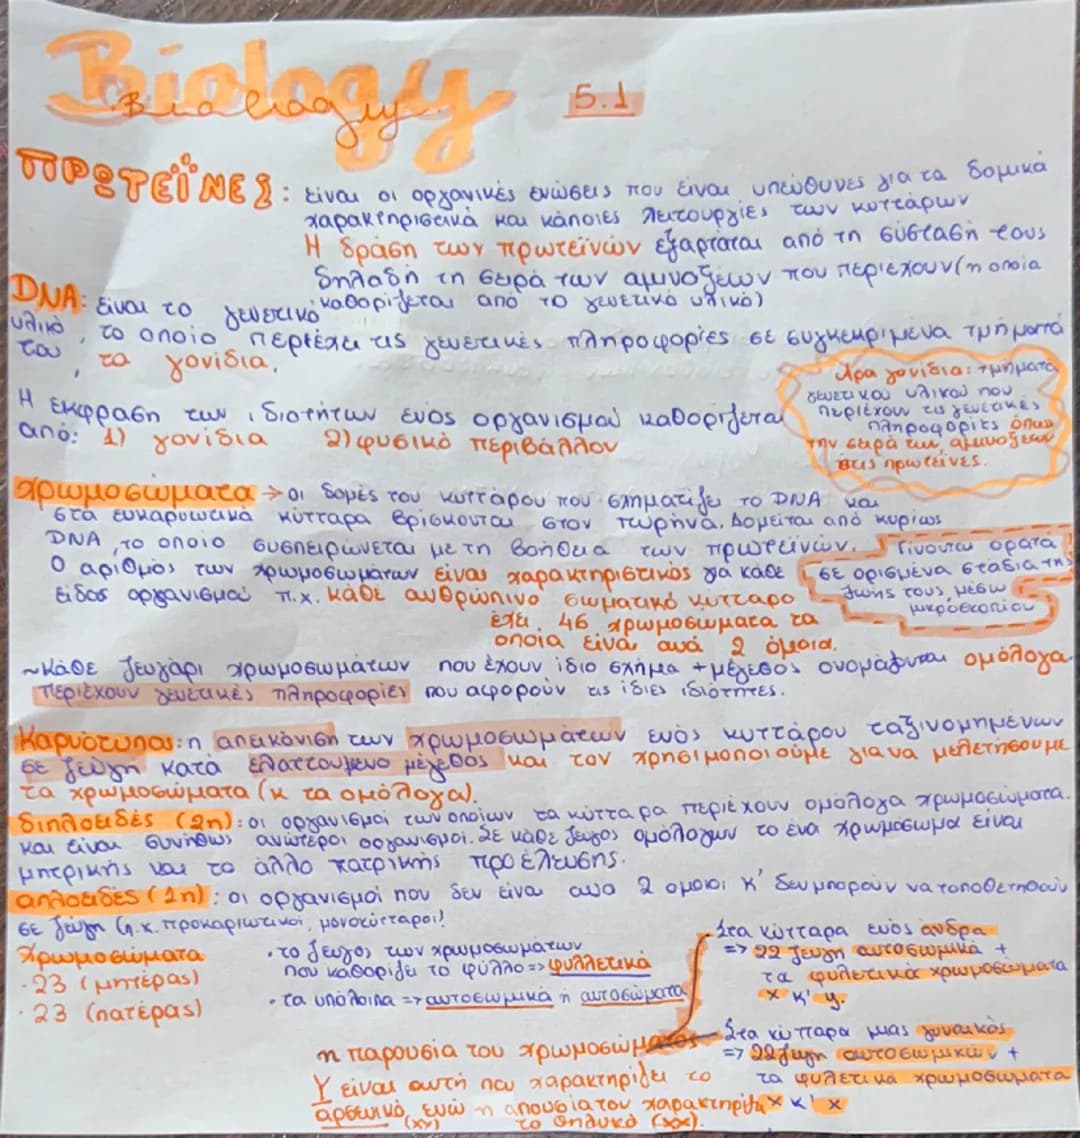 Biology
Biology 5.1
ΠΡΩΤΕΪΝΕΣ: είναι οι οργανικές ενώσεις που είναι υπεύθυνες για τα δομικά
χαρακτηριστικά και κάποιες λειτουργίες των κυττάρων
Η δράση των πρωτεϊνών εξαρτάται από τη σύστασή τους
δηλαδή τη σειρά των αμινοξέων που περιέχουν (η οποία
καθορίζεται από το γενετικό υλικό)
DNA: είναι το γενετικό
υλικό, το οποίο περιέχει τις γενετικές πληροφορίες σε συγκεκριμένα τμήματά
του, τα γονίδια.
Άρα γονίδια: τμήματα
γενετικού υλικού που
περιέχουν τις γενετικές
πληροφορίες όπως
την σειρά των αμινοξέων
στις πρωτεΐνες.
Η έκφραση των ιδιοτήτων ενός οργανισμού καθορίζεται
από: 1) γονίδια 2) φυσικό περιβάλλον
χρωμοσώματα → οι δομές του κυττάρου που σχηματίζει το DNA και
στα ευκαρυωτικά κύτταρα βρίσκονται στον πυρήνα. Δομείται από κυρίως
DNA, το οποίο συσπειρώνεται με τη βοήθεια των πρωτεϊνών.
Γίνονται ορατά
σε ορισμένα στάδια της
ζωής τους, μέσω
μικροσκοπίου
Ο αριθμός των χρωμοσωμάτων είναι χαρακτηριστικός για κάθε
είδος οργανισμού π.χ. κάθε ανθρώπινο σωματικό κύτταρο
έχει 46 χρωμοσώματα τα
οποία είναι ανά 2 όμοια.
~Κάθε ζευγάρι χρωμοσωμάτων που έχουν ίδιο σχήμα + μέγεθος ονομάζονται ομόλογα
περιέχουν γενετικές πληροφορίες που αφορούν τις ίδιες ιδιότητες.
Καρυότυπος: η απεικόνιση των χρωμοσωμάτων ενός κυττάρου ταξινομημένων
σε ζεύγη κατά ελαττούμενο μέγεθος και τον χρησιμοποιούμε για να μελετήσουμε
τα χρωμοσώματα (κ τα ομόλογα).
διπλοειδές (2n): οι οργανισμοί των οποίων τα κύτταρα περιέχουν ομόλογα χρωμοσώματα.
και είναι συνήθως ανώτεροι οργανισμοί. Σε κάθε ζεύγος ομόλογων το ένα χρωμόσωμα είναι
μητρικής και το άλλο πατρικής προέλευσης.
απλοειδές (1n): οι οργανισμοί που δεν είναι ανα 2 όμοιοι κ' δεν μπορούν να τοποθετηθούν
σε ζεύγη (π.χ. προκαριωτικοί, μονοκύτταροι)
Χρωμοσώματα
·23 (μητέρας)
·23 (πατέρας)
· το ζεύγος των χρωμοσωμάτων
που καθορίζει το φύλλο => φυλλετικά
· τα υπόλοιπα => αυτοσωμικά ή αυτοσώματα
Στα κύτταρα ενός άνδρα
=> 22 ζεύγη αυτοσωμικά +
τα φυλετικά χρωμοσώματα
x κ' y.
Στα κύτταρα μιας γυναικός
=> 22 ζεύγη αυτοσωμικών +
τα φυλετικά χρωμοσώματα
x κ' x
η παρουσία του χρωμοσώματος
Υ είναι αυτή που χαρακτηρίζει το
αρσενικό, ενώ η απουσία του χαρακτηρίζει
(xy) το θηλυκό (xx).